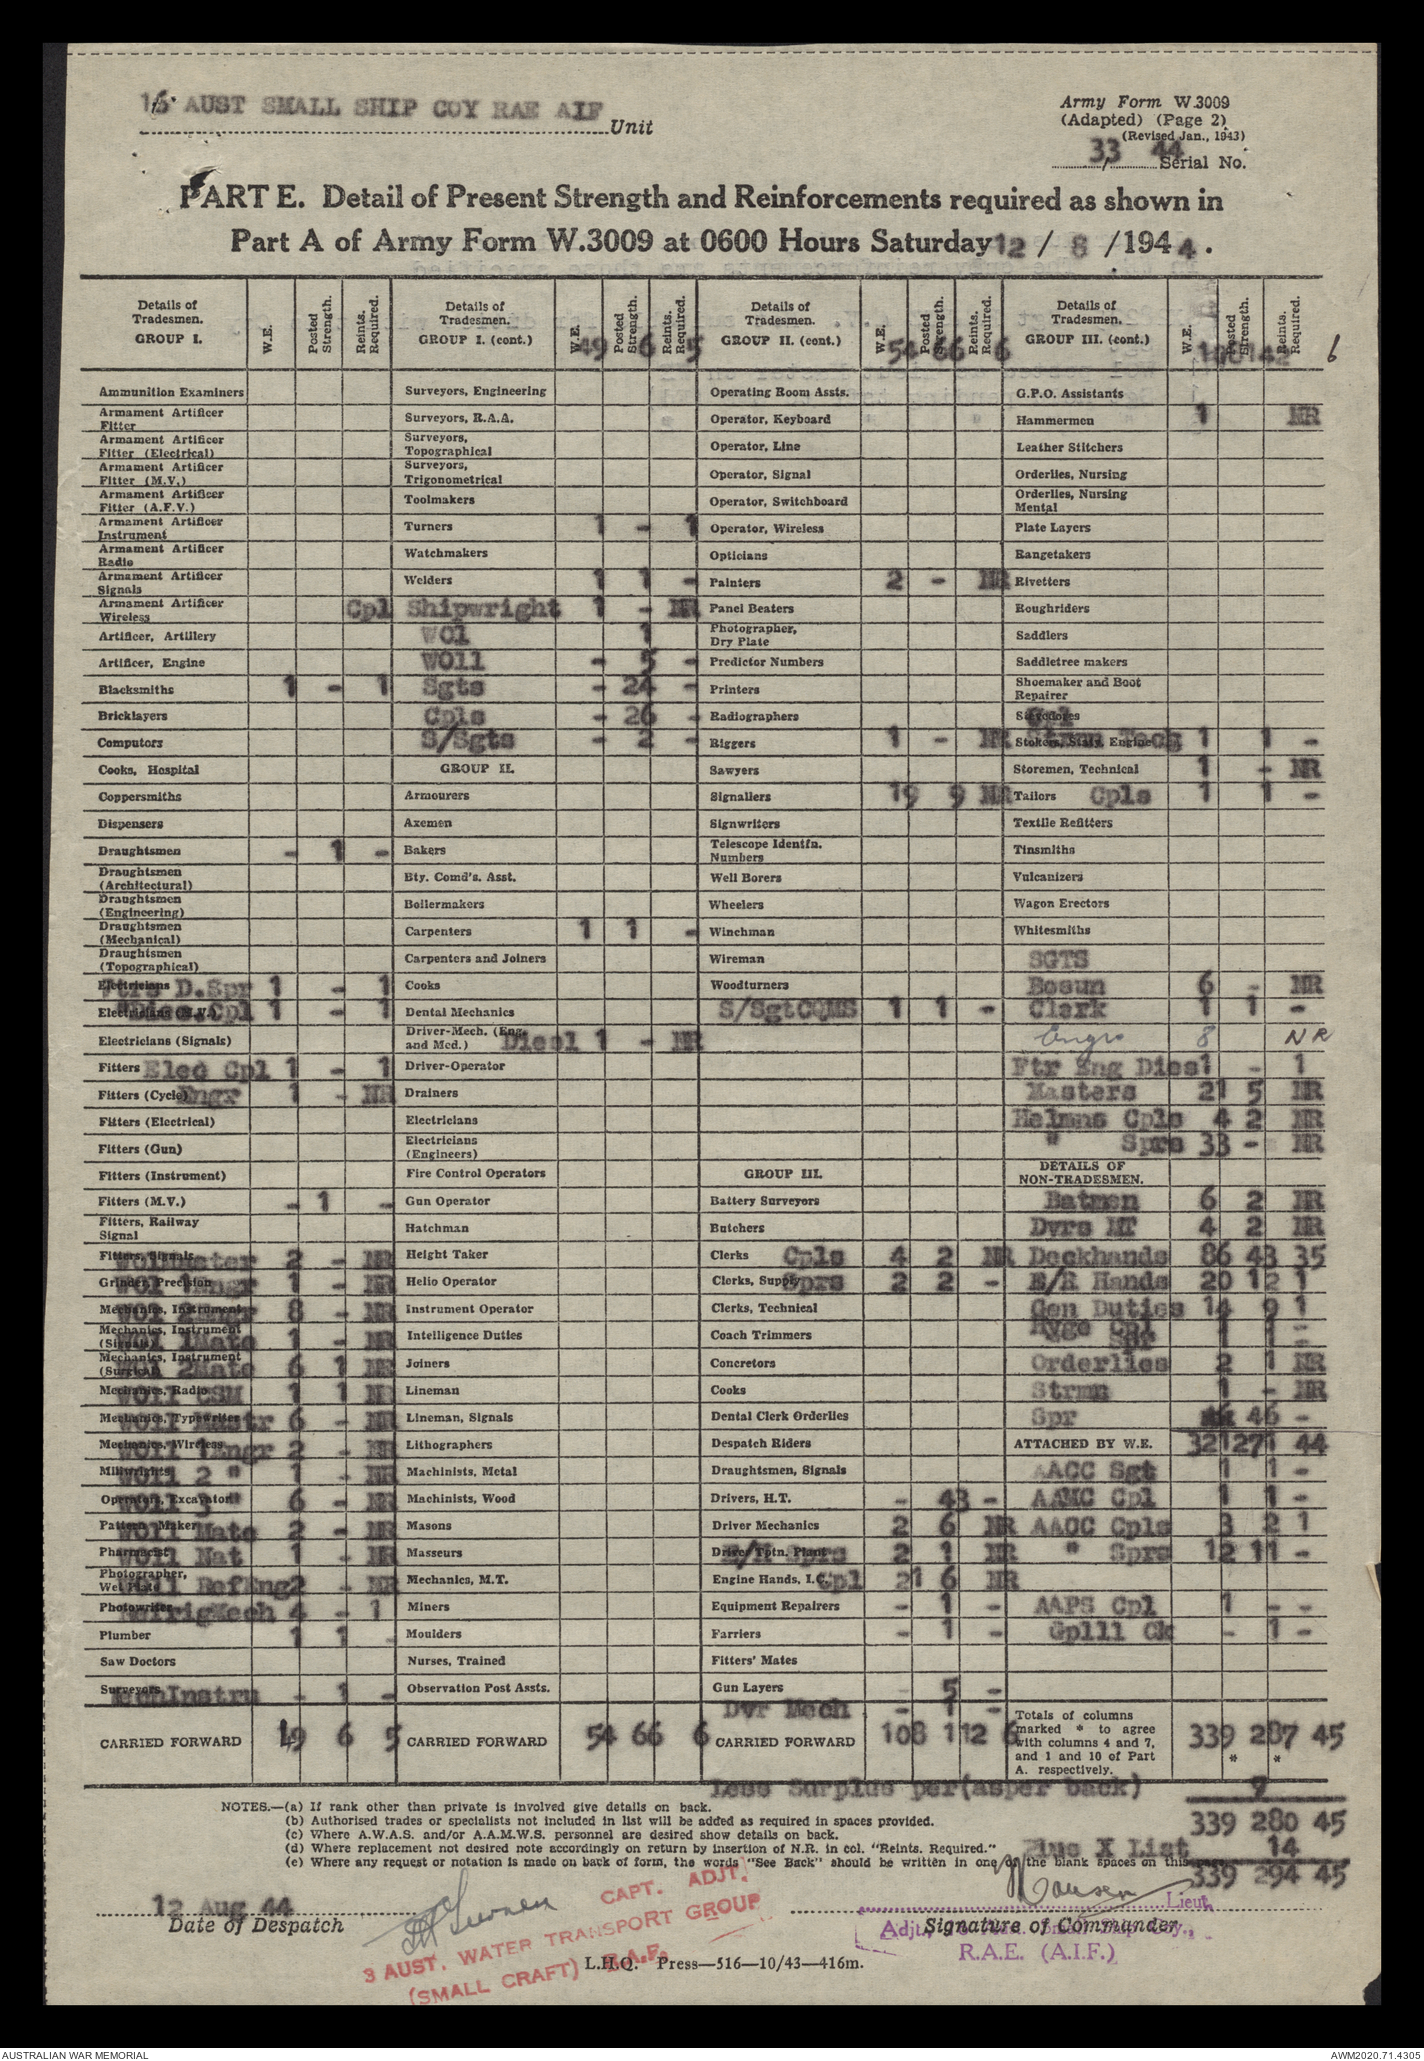 16 AUST SMALL SHIP COY RAE AIF
Unit
Army Form W.3009
(Adapted) (Page 2)
(Revised Jan., 1943)
33 / 44 Serial No.
PART E. Detail of Present Strength and Reinforcements required as shown in
Part A of Army Form W.3009 at 0600 Hours Saturday 12 / 8 /1944.
Details of Tradesmen. GROUP I. W.E. Posted Strength. Reints. Required.
Ammunition Examiners
Armament Artificer Fitter
Armament Artificer Fitter (Electrical)
Armament Artificer Fitter (M.V.)
Armament Artificer Fitter (A.F.V.)
Armament Artificer Instrument
Armament Artificer Radio
Armament Artificer Signals
Armament Artificer Wireless
Artificer, Artillery
Artificer, Engine
Blacksmiths 1 - 1
Bricklayers
Computors
Cooks, Hospital
Coppersmiths
Dispensers
Draughtsmen - 1 -
Draughtsmen (Architectural)
Draughtsmen (Engineering)
Draughtsmen (Mechanical)
Draughtsmen (Topographical)
Electricians Ftrs D.Spr 1 - 1
Electricians (M.V.) "Dies.Cpl 1 - 1
Electricians (Signals)
Fitters Elec Cpl 1 - 1
Fitters (Cycle) Engr 1 - NR
Fitters (Electrical)
Fitters (Gun)
Fitters (Instrument)
Fitters (M.V.) - 1 -
Fitters, Railway Signal
Fitters, Signals 2 - NR
Grinder, Precision WO1 1Engr 1 - NR
Mechanics, Instrument WO1 2Engr 8 - NR
Mechanics, Instrument (Signals) WO1 1Mate 1 - NR
Mechanics, Instrument (Surgical) 2Mate 6 1 NR
Mechanics, Radio WO11 CSM 1 1 N
Mechanics, Typewriter WO11 Mastr 6 - NR
Mechanics, Wireless WO11 1Engr 2 - NR
Millwrights WO11 2 " 1 - NR
Operators, Excavator WO11 3 " 6 - NR
Pattern Maker WO11 Mate 2 - NR
Pharmacist WO11 Nat 1 - NR
Photographer, Wet Plate WO11 RefEng 2 - NR
Photowriter RefrigMech 4 - 1
Plumber 1 1 -
Saw Doctors
Surveyors MechInstru - 1 -
CARRIED FORWARD 19 6 5
Details of Tradesmen. GROUP I. (cont.) W.E. Posted Strength. Reints. Required.
49 6 5
Surveyors, Engineering
Surveyors, R.A.A.
Surveyors, Topographical
Surveyors, Trigonometrical
Toolmakers
Turners 1 - 1
Watchmakers
Welders 1 1 -
Cpl Shipwright 1 - NR
WO1 1
WO11 - 5 -
Sgts - 24 -
Cpls - 26 -
S/Sgts - 2 -
GROUP II.
Armourers
Axemen
Bakers
Bty. Comd's. Asst.
Boilermakers
Carpenters 1 1 -
Carpenters and Joiners
Cooks
Dental Mechanics
Driver-Mech. (Eng. and Med.) Diesl 1 - NR
Driver-Operator
Drainers
Electricians
Electricians (Engineers)
Fire Control Operators
Gun Operator
Hatchman
Height Taker
Helio Operator
Instrument Operator
Intelligence Duties
Joiners
Lineman
Lineman, Signals
Lithographers
Machinists, Metal
Machinists, Wood
Masons
Masseurs
Mechanics, M.T.
Miners
Moulders
Nurses, Trained
Observation Post Assts.
CARRIED FORWARD 54 66 6
Details of Tradesmen. GROUP II. (cont.) W.E. Posted Strength. Reints. Required.
54 66 6
Operating Room Assts.
Operator, Keyboard
Operator, Line
Operator, Signal
Operator, Switchboard
Operator, Wireless
Opticians
Painters 2 - NR
Panel Beaters
Photographer, Dry Plate
Predictor Numbers
Printers
Radiographers
Riggers 1 - NR
Sawyers
Signallers 19 9 NR
Signwriters
Telescope Identfn. Numbers
Well Borers
Wheelers
Winchman
Wireman
Woodturners
S/SgtCQMS 1 1 -
GROUP III.
Battery Surveyors
Butchers
Clerks Cpls 4 2 NR
Clerks, Supply Sprs 2 2 -
Clerks, Technical
Coach Trimmers
Concretors
Cooks
Dental Clerk Orderlies
Despatch Riders
Draughtsmen, Signals
Drivers, H.T. - 43 -
Driver Mechanics 2 6 NR
Driver Tptn. Plant Sprs 2 1 NR
Engine Hands, I.C. Cpl 21 6 NR
Equipment Repairers - 1 -
Farriers - 1 -
Fitters' Mates
Gun Layers - 5 -
Dvr Mech - 1 -
CARRIED FORWARD 108 112 6
Details of Tradesmen. GROUP III. (cont.) W.E. Posted Strength. Reints. Required.
142 6
G.P.O. Assistants
Hammermen 1 NR
Leather Stitchers
Orderlies, Nursing
Orderlies, Nursing Mental
Plate Layers
Rangetakers
Rivetters
Roughriders
Saddlers
Saddletree makers
Shoemaker and Boot Repairer
Stevedores Cpl
Stokers, Staty. Engine Strmn Tech 1 1 -
Storemen, Technical 1 - NR
Tailors Cpls 1 1 -
Textile Refitters
Tinsmiths
Vulcanizers
Wagon Erectors
Whitesmiths
SGTS
Bosun 6 - NR
Clerk 1 1 -
Engr 8 NR
Ftr Eng Dies 1 - 1
Masters 21 5 NR
Helmns Cpls 4 2 NR
" Sprs 33 - NR
DETAILS OF NON-TRADESMEN.
Batmen 6 2 NR
Dvrs MT 4 2 NR
Deckhands 86 43 35
E/R Hands 20 12 1
Gen Duties 14 9 1
Hyge Cpl 1 1 -
Spr 1 1 -
Orderlies 2 1 NR
Strmn 1 - NR
Spr 46 -
ATTACHED BY W.E. 321 271 44
AACC Sgt 1 1 -
AAMC Cpl 1 1 -
AACC Cpls 3 2 1
" Sprs 12 11 -
AAPS Cpl 1 - -
Gp111 Ck - 1 -
Totals of columns marked * to agree with columns 4 and 7, and 1 and 10 of Part A. respectively. 339 287 45
* *
Less Surplus per(asper back) 7
339 280 45
Plus X List 14
339 294 45
NOTES.—(a) If rank other than private is involved give details on back.
(b) Authorised trades or specialists not included in list will be added as required in spaces provided.
(c) Where A.W.A.S. and/or A.A.M.W.S. personnel are desired show details on back.
(d) Where replacement not desired note accordingly on return by insertion of N.R. in col. "Reints. Required."
(e) Where any request or notation is made on back of form, the words "See Back" should be written in one of the blank spaces on this page.
12 Aug 44
Date of Despatch
CAPT. ADJT.
3 AUST. WATER TRANSPORT GROUP
(SMALL CRAFT) R.A.E.
Lieut
Signature of Commander
Adjt. Small Ship Coy.,
R.A.E. (A.I.F.)
L.H.Q. Press—516—10/43—416m.
AUSTRALIAN WAR MEMORIAL
AWM2020.71.4305